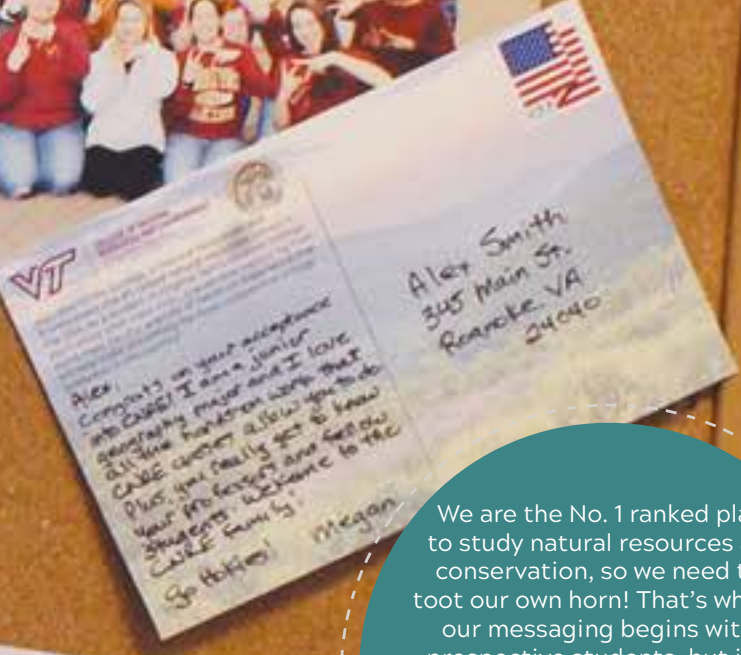 VT
Alex,
Congrats on your acceptance
into CNRE! I am a junior
geography major and I love
all the hands-on work that
CNRE classes allow you to do.
Plus, you really get to know
your professors and fellow
students. Welcome to the
CNRE family!
Go Hokies! Megan
Alex Smith
345 Main St.
Roanoke, VA
24040
We are the No. 1 ranked pla
to study natural resources
conservation, so we need t
toot our own horn! That's wh
our messaging begins wit
prospective students, but i